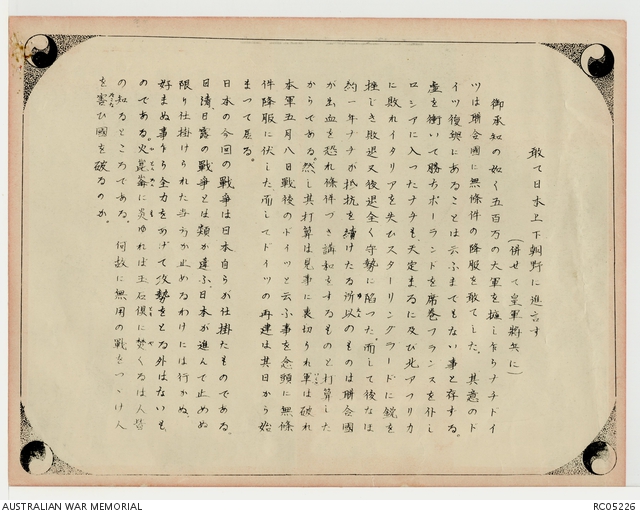 敢て日本上下朝野に進言す
(併せて皇軍将兵に)
御承知の如く五百万の大軍を擁し乍らナチドイ
ツは聯合國に無條件の降服を敢てした。其意のド
イツ復興にあることは云ふまでもない事と存する。
虚を衝いて勝ちポーランドを席巻フランスを仆し
ロシアに入ったナチも天定まるに及び北アフリカ
に敗れイタリアを失ひスターリングラードに鋭を
挫しき敗退又後退全く守勢に陥つた。而して後なほ
約一年ナチが抵抗を續けたる所以のものは聯合國
が出血を恐れ條件つき講和をするものと打算した
からである。然し其打算は見事に裏切られ軍は破れ
本軍五月八日戦後のドイツと云ふ事を念頭に無條
件降服に伏した。而してドイツの再建は其日から始
まつて居る。
日本の今回の戦争は日本自らが仕掛たものである。
日清、日露の戦争とは類が違ふ、日本が進んで止めぬ
限り仕掛けられた当方が止めるわけには行かぬ。
好まぬ事乍ら全力をあげて攻勢をとる外はないも
のである。火崑崙に炎ゆれば玉石倶に焚くるは人皆
の知るところである。何故に無用の戦をつゞけ人
を害ひ國を破るのか。
AUSTRALIAN WAR MEMORIAL
RC05226